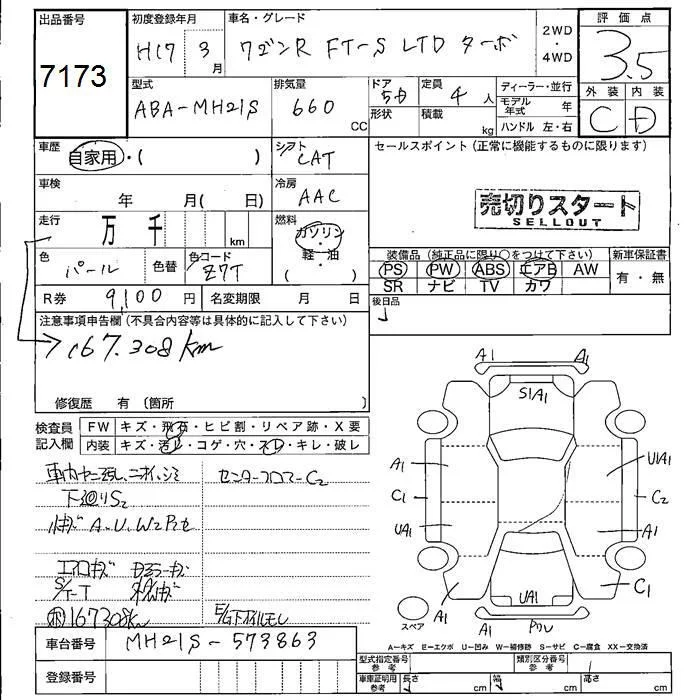 出品番号 7173
初度登録年月 H17 3月
車名・グレード ワゴンR FT-S LTD ターボ
2WD・4WD
評価点 3.5
外装 C 内装 D
型式 ABA-MH21S
排気量 660 CC
ドア形状 5D
定員 4人
積載 kg
ディーラー・並行
モデル年式 年
ハンドル 左・右
車歴 自家用・( )
シフト CAT
セールスポイント(正常に機能するものに限ります)
車検 年 月( 日)
冷房 AAC
売切りスタート
SELLOUT
走行 万 千 km
燃料 ガソリン・軽・油
色 パール 色替
色コード Z7T
装備品(純正品に限り○をつけて下さい)
新車保証書 有・無
PS PW ABS エアB AW
SR ナビ TV カワ
R券 9,100円
名変期限 月 日
後日品
注意事項申告欄(不具合内容等は具体的に記入して下さい)
167.308km
修復歴 有(箇所
検査員記入欄
FW キズ・飛石・ヒビ割・リペア跡・X要
内装 キズ・汚レ・コゲ・穴・スレ・キレ・破レ
車内ヤニ汚レ、ニオイ、シミ
センターフロアーC2
下廻りS2
小キズ A、U、W2
エアロキズ
S/T-T
167308km
車台番号 MH21S-573863
登録番号
A1 A1
S1A1
A1
U1A1
C1
C2
UA1
A1
A1
UA1
C1
A1
スペア
A-キズ E-エクボ U-凹み W-補修跡 S-サビ C-腐食 XX-交換済
型式指定番号 参考
類別区分番号 参考
車庫証明用 参考 長さ cm 幅 cm 高さ cm